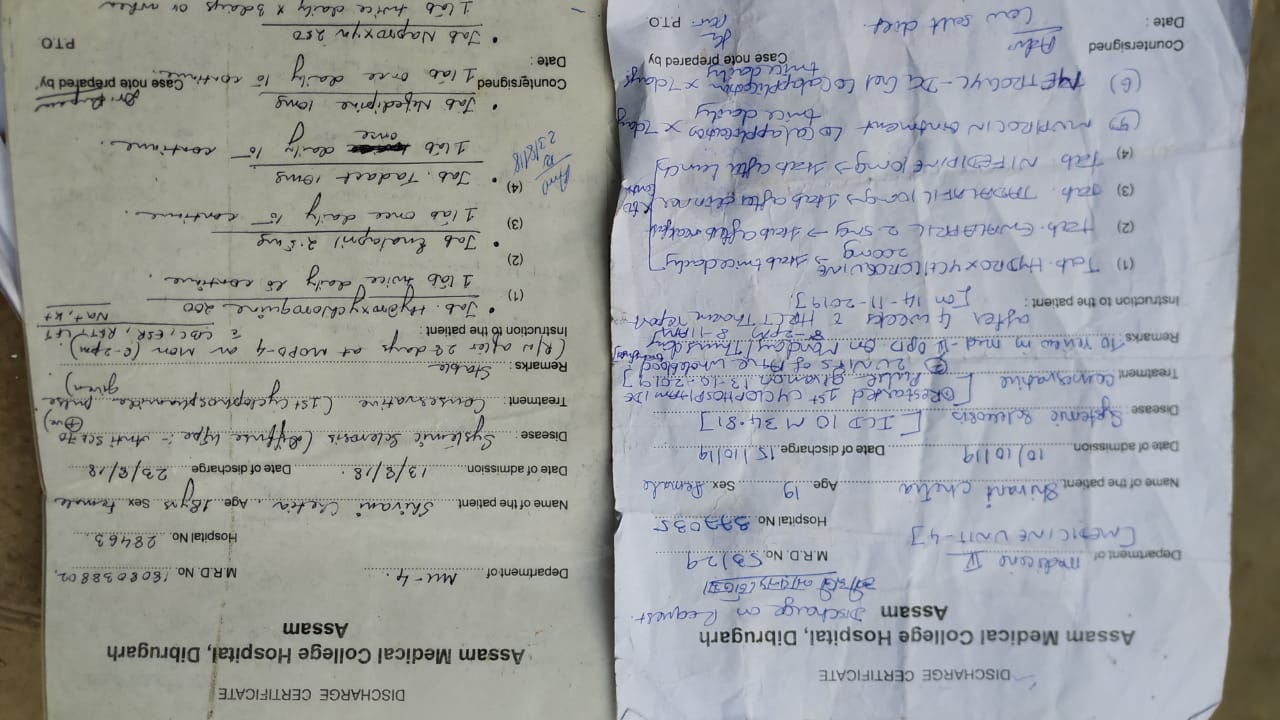 DISCHARGE CERTIFICATE
Assam Medical College Hospital, Dibrugarh
Assam
Discharge on Request.
Department of medicine IV M.R.D. No. 53129
[MEDICINE UNIT-4]
Hospital No. 377035
Name of the patient Shivani chetia Age 19 Sex female
Date of admission 10/10/19 Date of discharge 15/10/19
Disease Systemic Sclerosis [ICD 10 M 34.81]
Treatment conservative [① Restarted 1st CYCLOPHOSPHAMIDE
Pulse given on 13.10.2019]
② 2 UNITS of A+ve whole blood
Remarks To review in med IV OPD on Monday/Thursday
after 4 weeks c̄ HRCT Thorax report
8-11 AM
Instruction to the patient : [on 14-11-2019].
(1) Tab. HYDROXYCHLOROQUINE 200mg → 1 tab twice daily
(2) Tab. ENALAPRIL 2.5mg → 1 tab after breakfast
(3) Tab. TADALAFIL 10mg → 1 tab after dinner
(4) Tab NIFEDIPINE 10mg → 1 tab after lunch
(5) MUPIROCIN ointment LOCAL application x 7 days
twice daily
(6) METROGYL-DG Gel local application x 7 days
twice daily
Countersigned Case note prepared by
Adv
Low salt diet
Date : P.T.O.
DISCHARGE CERTIFICATE
Assam Medical College Hospital, Dibrugarh
Assam
Department of MU-4. M.R.D. No. 1808038802
Hospital No. 28463
Name of the patient Shivani Chetia Age 18yrs Sex female
Date of admission 13/8/18. Date of discharge 23/8/18
Disease : Systemic Sclerosis (Diffuse type :- Anti Scl 70
+ve)
Treatment Conservative (1st Cyclophosphamide pulse
given)
Remarks : Stable
(R/v after 28 days at MOPD-4 on MON (8-2pm)
Instruction to the patient : c̄ CBC, ESR, RFT, LFT
Na+, K+
(1) • Tab. Hydroxychloroquine 200
1 tab twice daily to continue.
(2) • Tab Enalapril 2.5mg
(3) 1 tab once daily to continue.
(4) • Tab. Tadact 10mg
1 tab once daily to continue.
23/8/18
• Tab Nifedipine 10mg
1 tab once daily to continue.
Countersigned Case note prepared by
Date :
PTO
• Tab Naproxyn 250
1 tab twice daily x 3 days or when